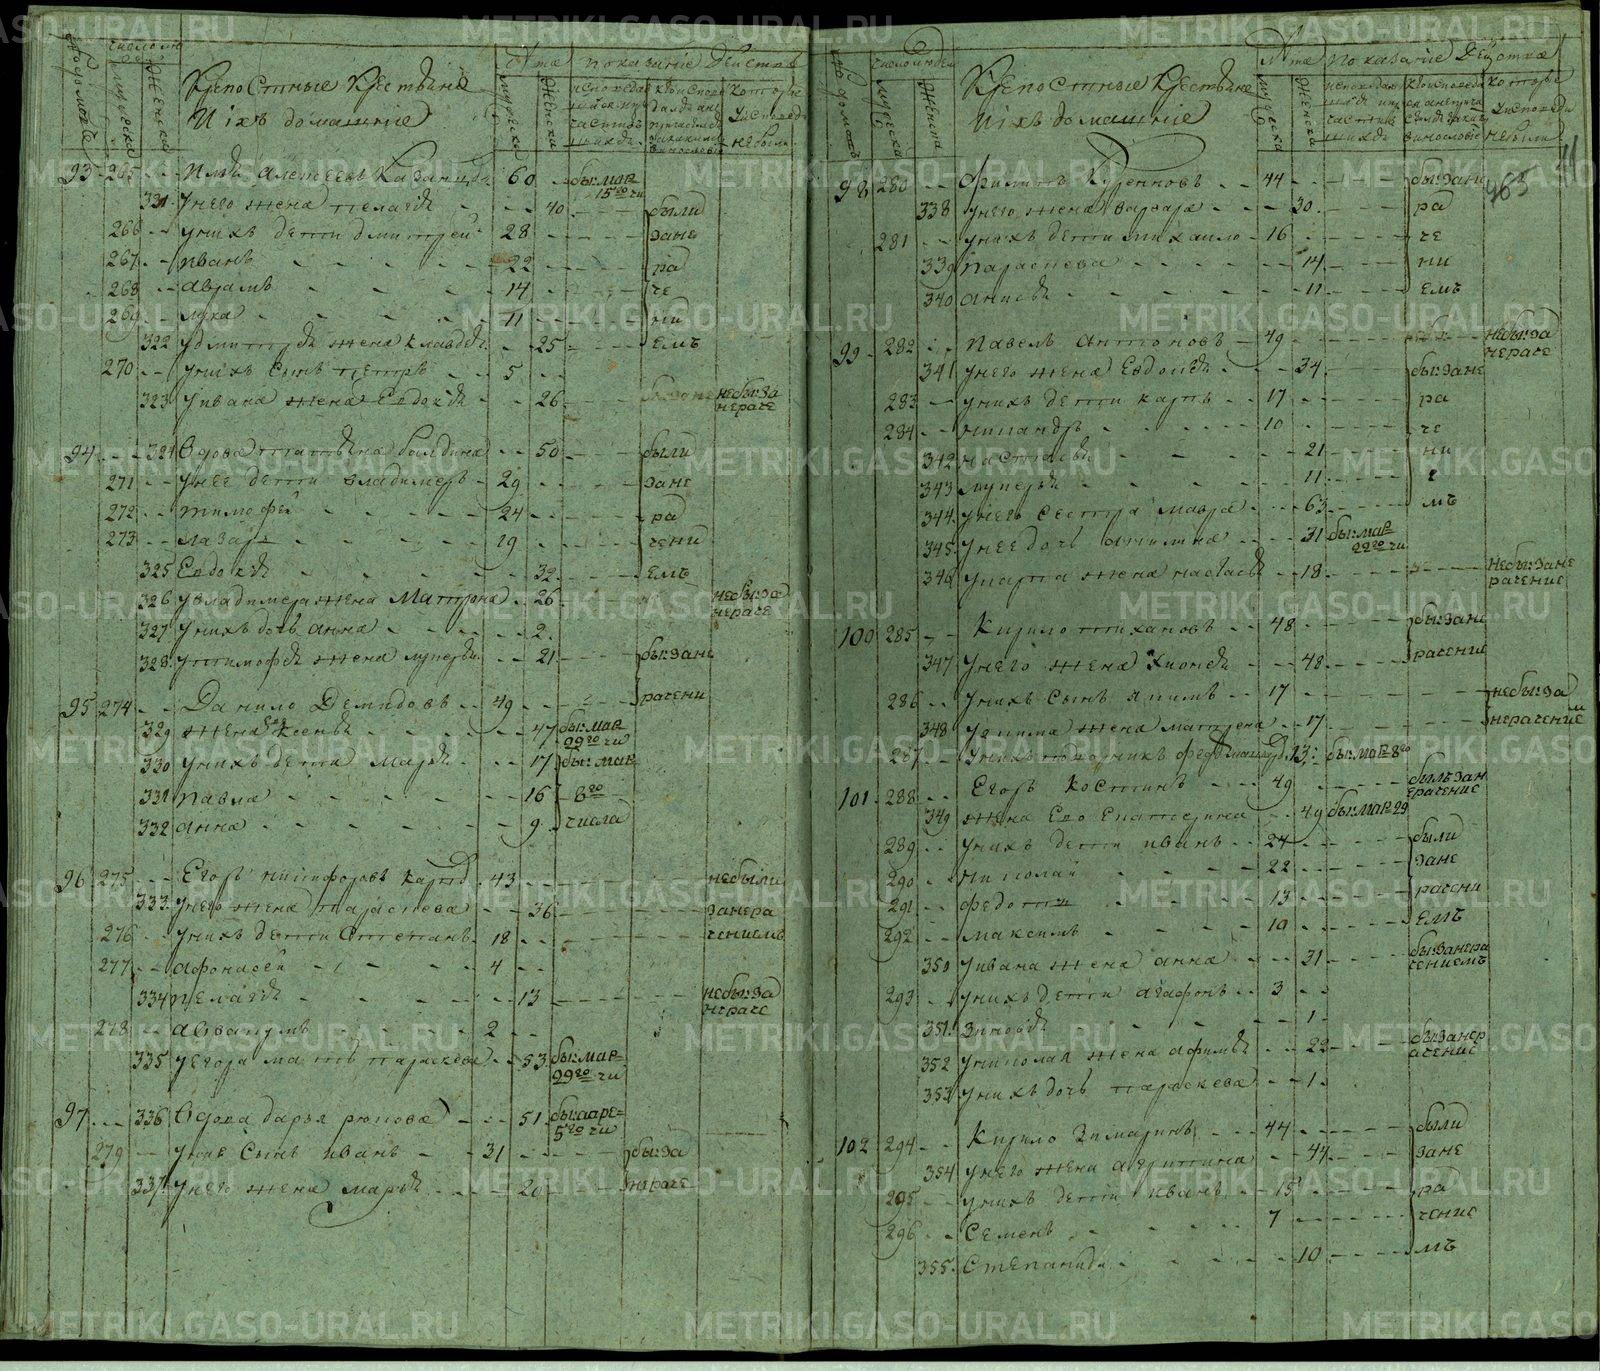 Крепостные Крестьяне
И ихъ домашние
Лета показание Действа
93 265 Илья Алексеевъ Казанцовъ 60 бы: мар 15го чи
321 У него жена Пелагея 40 были
266 У нихъ дети Дмитрей 28 зане
267 Иванъ 22 ра
268 Аврамъ 14 че
269 Лука 11 ни
322 У Дмитрея жена Клавдея 25 емъ
270 У нихъ сынъ Петръ 5
323 У Ивана жена Евдокея 26 небы: за нераче
94 324 Вдова Татьяна Болдина 50 были
271 У нее дети Владимеръ 29 зане
272 Тимофей 24 ра
273 Лазарь 19 чени
325 Евдокея 32 емъ
326 У Владимера жена Матрона 26 небы: за нераче
327 У нихъ дочь Анна 2
328 У Тимофея жена Лукерья 21 бы: зане
95 274 Данило Демидовъ 49 рачени
329 Жена Ксенья 47 бы: мар 22го чи
330 У нихъ дети Марья 17 бы: мар
331 Павла 16 8го
332 Анна 9 числа
96 275 Егоръ Никифоровъ 43 небыли
333 У него жена Параскева 36 занера
276 У нихъ дети Степанъ 18 чениемъ
277 Афонасей 4
334 Пелагея 13 небы: за нераче
278 Аввакумъ 2
335 У Егора мать Параскева 53 бы: мар 22го чи
97 336 Вдова Дарья 51 5го чи
279 У нее сынъ Иванъ 31 бы: за
337 У него жена Марья 20 нераче
Крепостные Крестьяне
И ихъ домашние
Лета показание Действа
465
98 280 Филипъ 44 бы: зане
338 У него жена Варвара 30 ра
281 У нихъ дети Михайло 16 че
339 Параскева 14 ни
340 Анисья 11 емъ
99 282 Павелъ Антоновъ 49 небы: за нераче
341 У него жена Евдокия 34 бы: зане
283 У нихъ дети Карпъ 17 ра
284 Никандръ 10 че
342 Настасья 21 ни
343 Лукерья 11 е
344 У него сестра Мавра 63 мъ
345 У нее дочь Акилина 31 бы: мар 22го чи
346 У Карпа жена Настасья 18 небы: зане рачение
100 285 Кирило Тихановъ 48 бы: зане
347 У него жена Хионея 48 рачение
286 У нихъ сынъ Якимъ 17 небы: за
348 У Якима жена Матрена 17 нерачением
287 У нихъ 13 бы: мар 8го
101 288 Егоръ Костинъ 49 былъ зан ерачение
349 Жена Ево Екатерина 49 бы: мар 29
289 У нихъ дети Иванъ 24 были
290 Николай 22 зане
291 Федотъ 13 рачени
292 Максимъ 10 емъ
350 У Ивана жена Анна 31 бы: занера чениемъ
293 У нихъ дети Агафонъ 3
351 Зиновея 1
352 У Николая жена Афимья 22 бы: занер ачение
353 У нихъ дочь Параскева 1
102 294 Кирило Зимаринъ 44 были
354 У него жена Агрипина 44 зане
295 У нихъ дети Иванъ 15 ра
296 Семенъ 7 чение
355 Степанида 10 мъ
METRIKI.GASO-URAL.RU